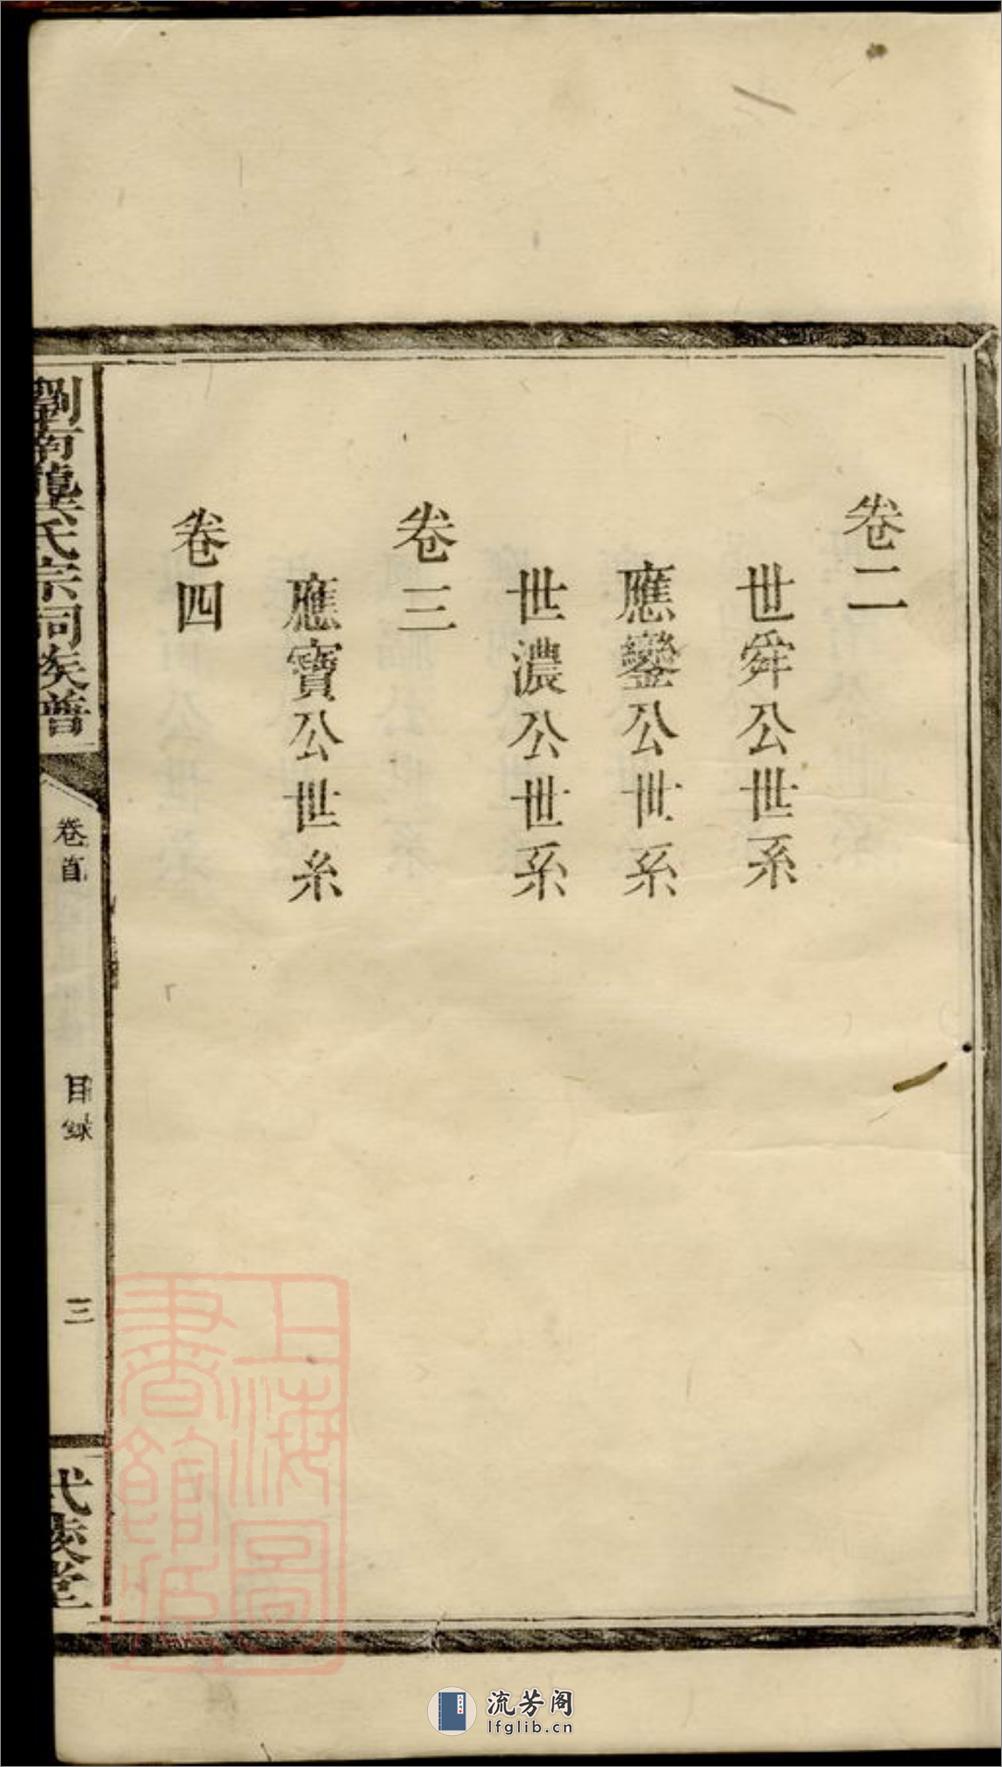 卷二
世舜公世系
應鑾公世系
世濃公世系
卷三
應寶公世糸
卷四
劉南龔氏宗祠族譜
卷首
目録
三
武陵堂
上海圖
書館藏
流芳阁
lfglib.cn